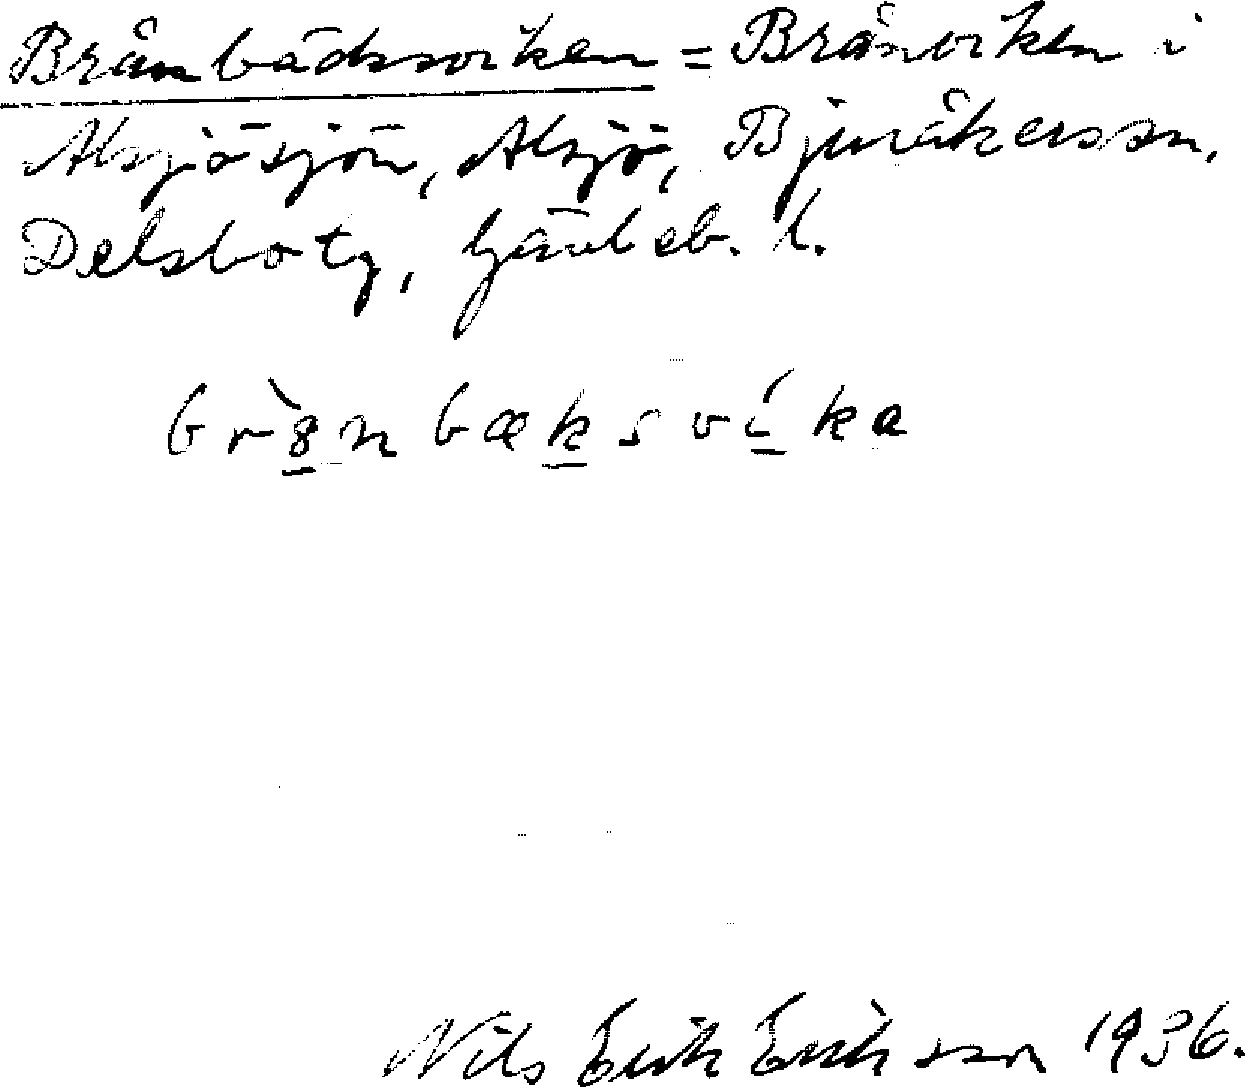 Brånbäcksviken = Brånviken i
Alsjösjön, Alsjö, Bjuråkers sn,
Delsbo tg, Gävleb. l.
brånbæksvíka
Nils Erik Eriksson 1936.